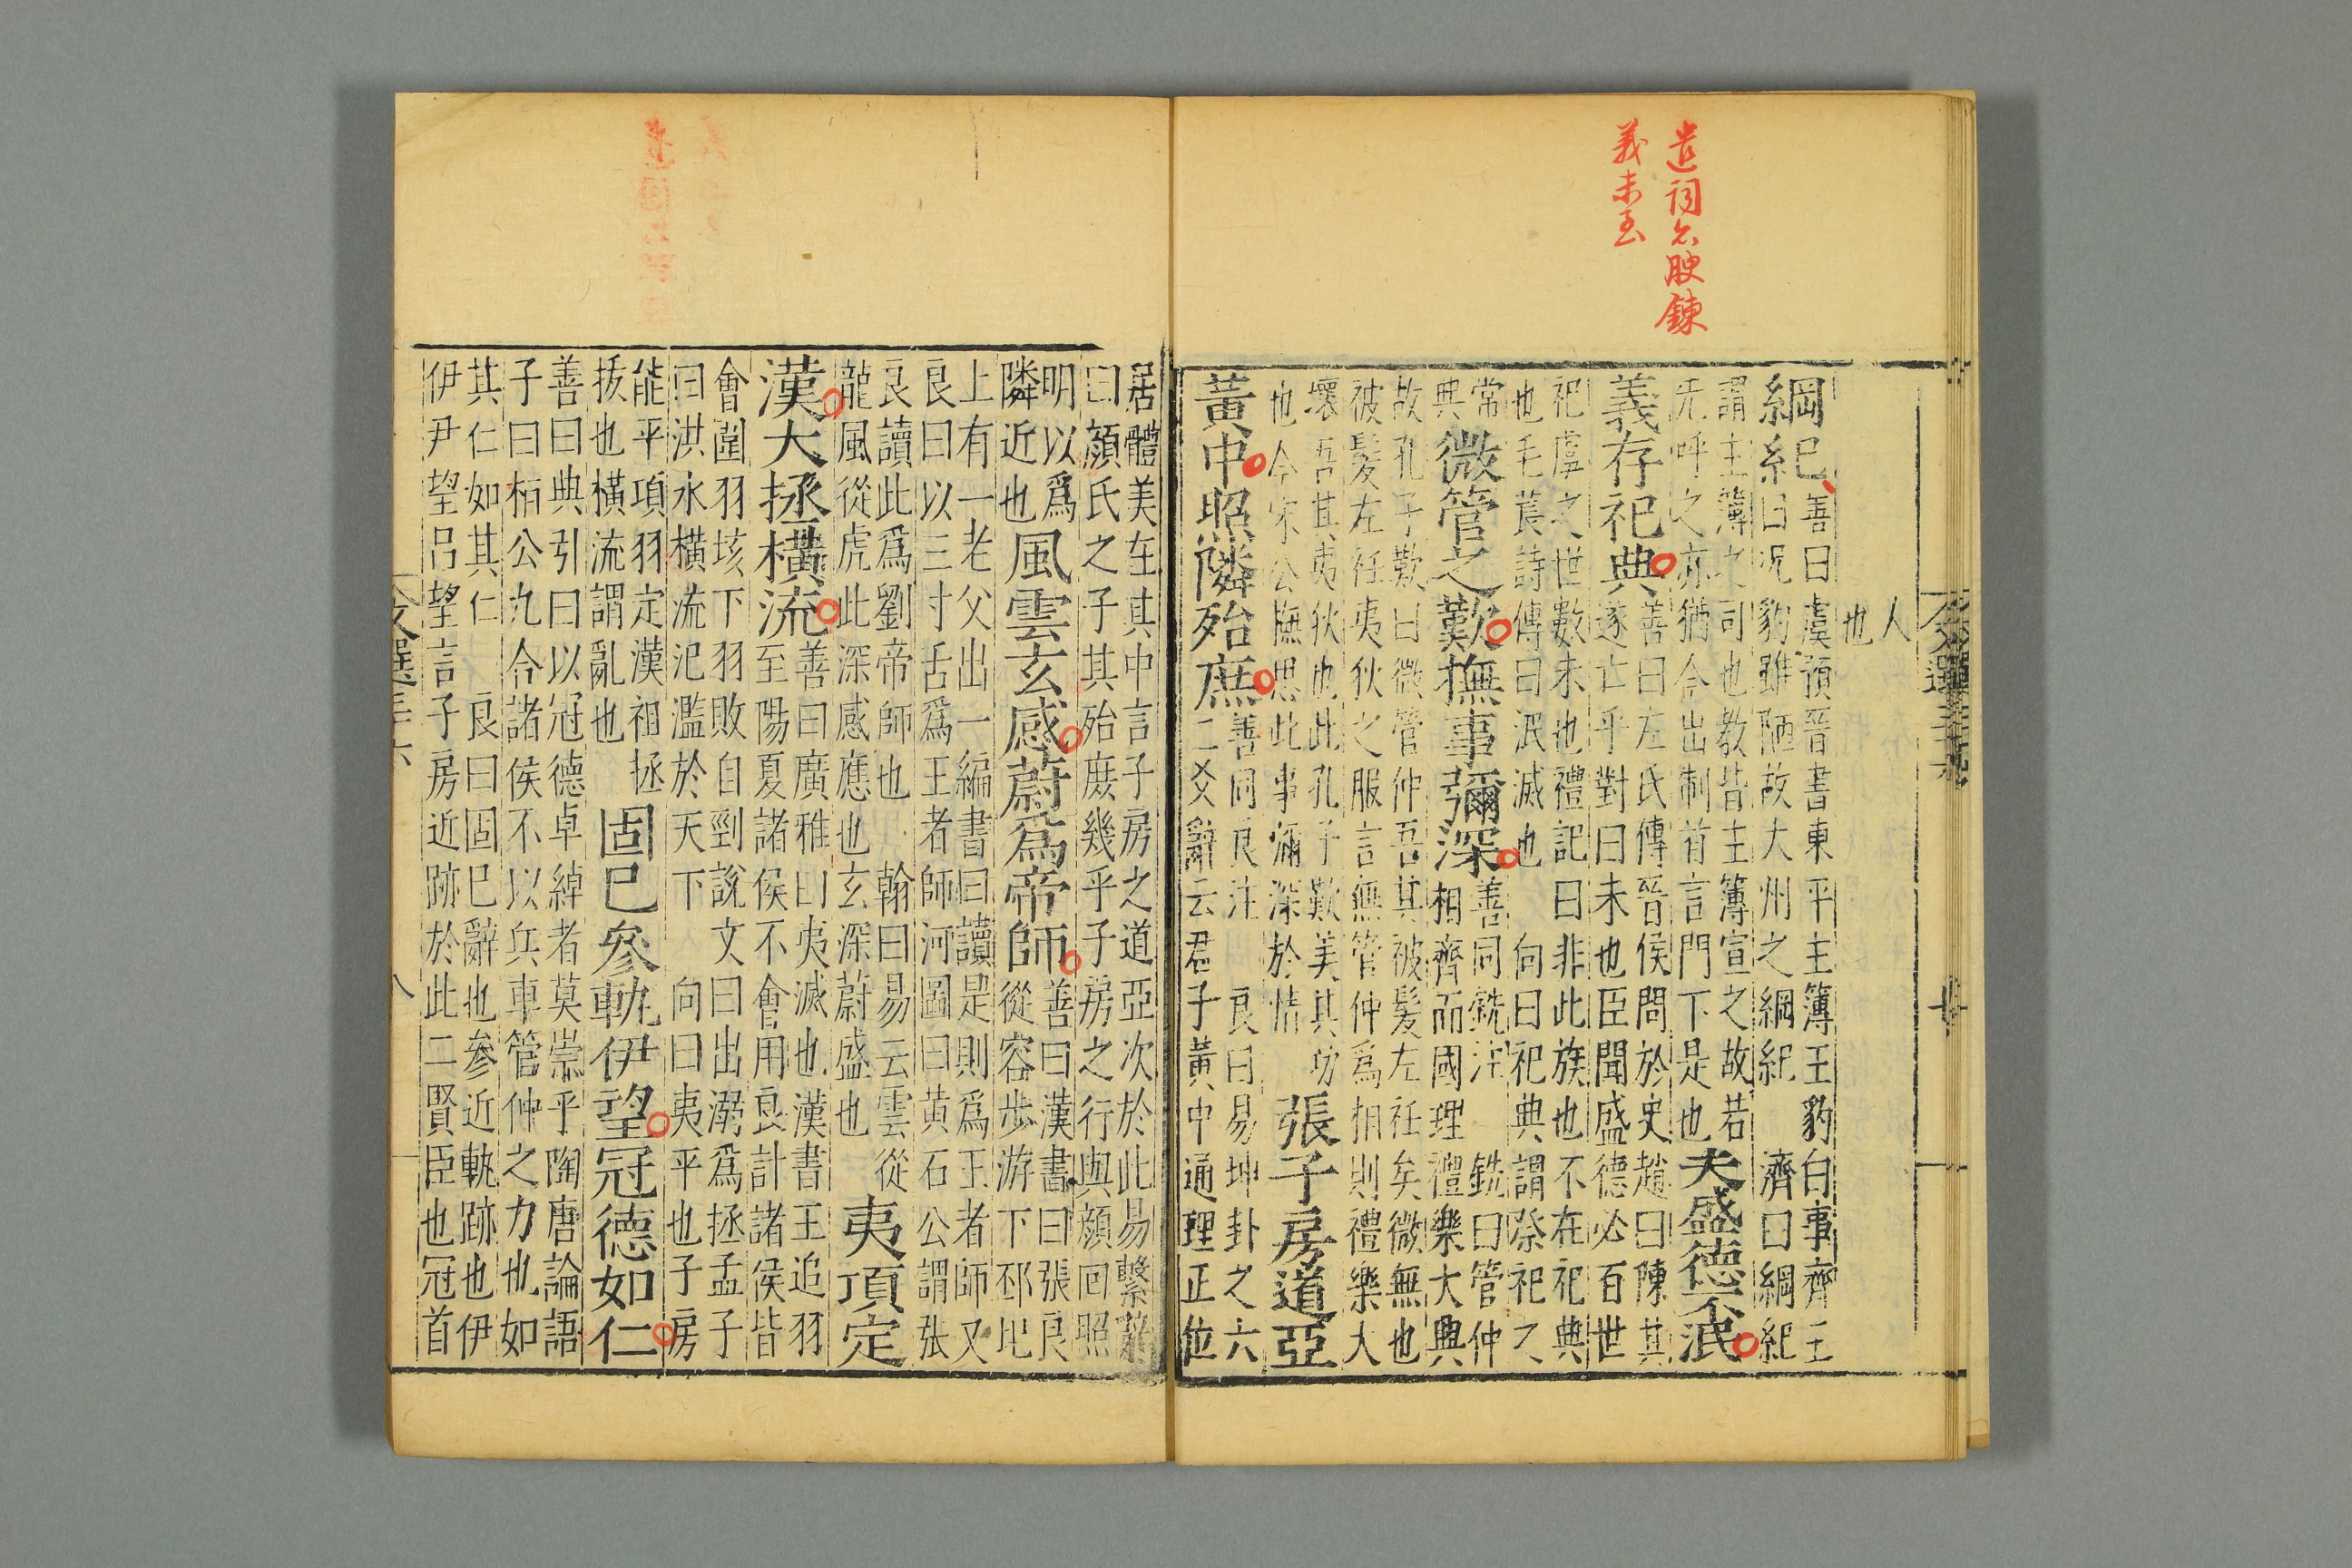 遣詞亦腴鍊
義未至
人
也
綱紀善曰虞預晉書東平主簿王豹白事齊王
曰況豹雖陋故大州之綱紀 濟曰綱紀
謂主簿之司也教皆主簿宣之故若
夫盛德不泯
義存祀典善曰左氏傳晉侯問於史趙曰陳其
遂亡乎對曰未也臣聞盛德必百世
祀虞之世數未也禮記曰非此族也不在祀典
也毛萇詩傳曰泯滅也 向曰祀典謂祭祀之
常
典
微管之歎撫事彌深善同銑注 銑曰管仲
相齊而國理禮樂大興
故孔子歎曰微管仲吾其被髮左衽矣微無也
被髮左衽夷狄之服言無管仲爲相則禮樂大
壞吾其夷狄也此孔子歎美其功
也今宋公撫思此事彌深於情
張子房道亞
黃中照隣殆庶善同良注 良曰易坤卦之六
二爻辭云君子黃中通理正位
居體美在其中言子房之道亞次於此易繫辭
曰顏氏之子其殆庶幾乎子房之行與顏回照
明以爲
隣近也
風雲玄感蔚爲帝師善曰漢書曰張良
從容步游下邳圯
上有一老父出一編書曰讀是則爲王者師又
良曰以三寸舌爲王者師河圖曰黃石公謂張
良讀此爲劉帝師也 翰曰易云雲從
龍風從虎此深感應也玄深蔚盛也
夷項定
漢大拯橫流善曰廣雅曰夷滅也漢書王追羽
至陽夏諸侯不會用良計諸侯皆
會圍羽垓下羽敗自剄說文曰出溺爲拯孟子
曰洪水橫流氾濫於天下 向曰夷平也子房
能平項羽定漢祖拯
拔也橫流謂亂也
固已參軌伊望冠德如仁
善曰典引曰以冠德卓綽者莫崇乎陶唐論語
子曰桓公九合諸侯不以兵車管仲之力也如
其仁如其仁 良曰固已辭也參近軌跡也伊
伊尹望呂望言子房近跡於此二賢臣也冠首